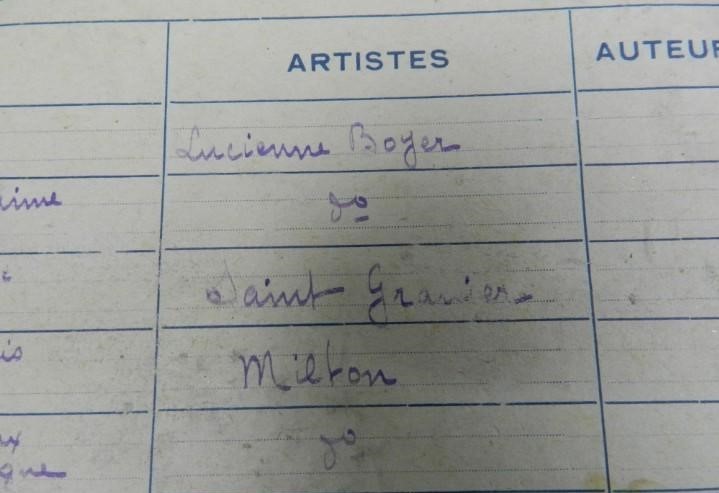 ARTISTES AUTEUR
Lucienne Boyer
do
Saint Granier
Milton
do